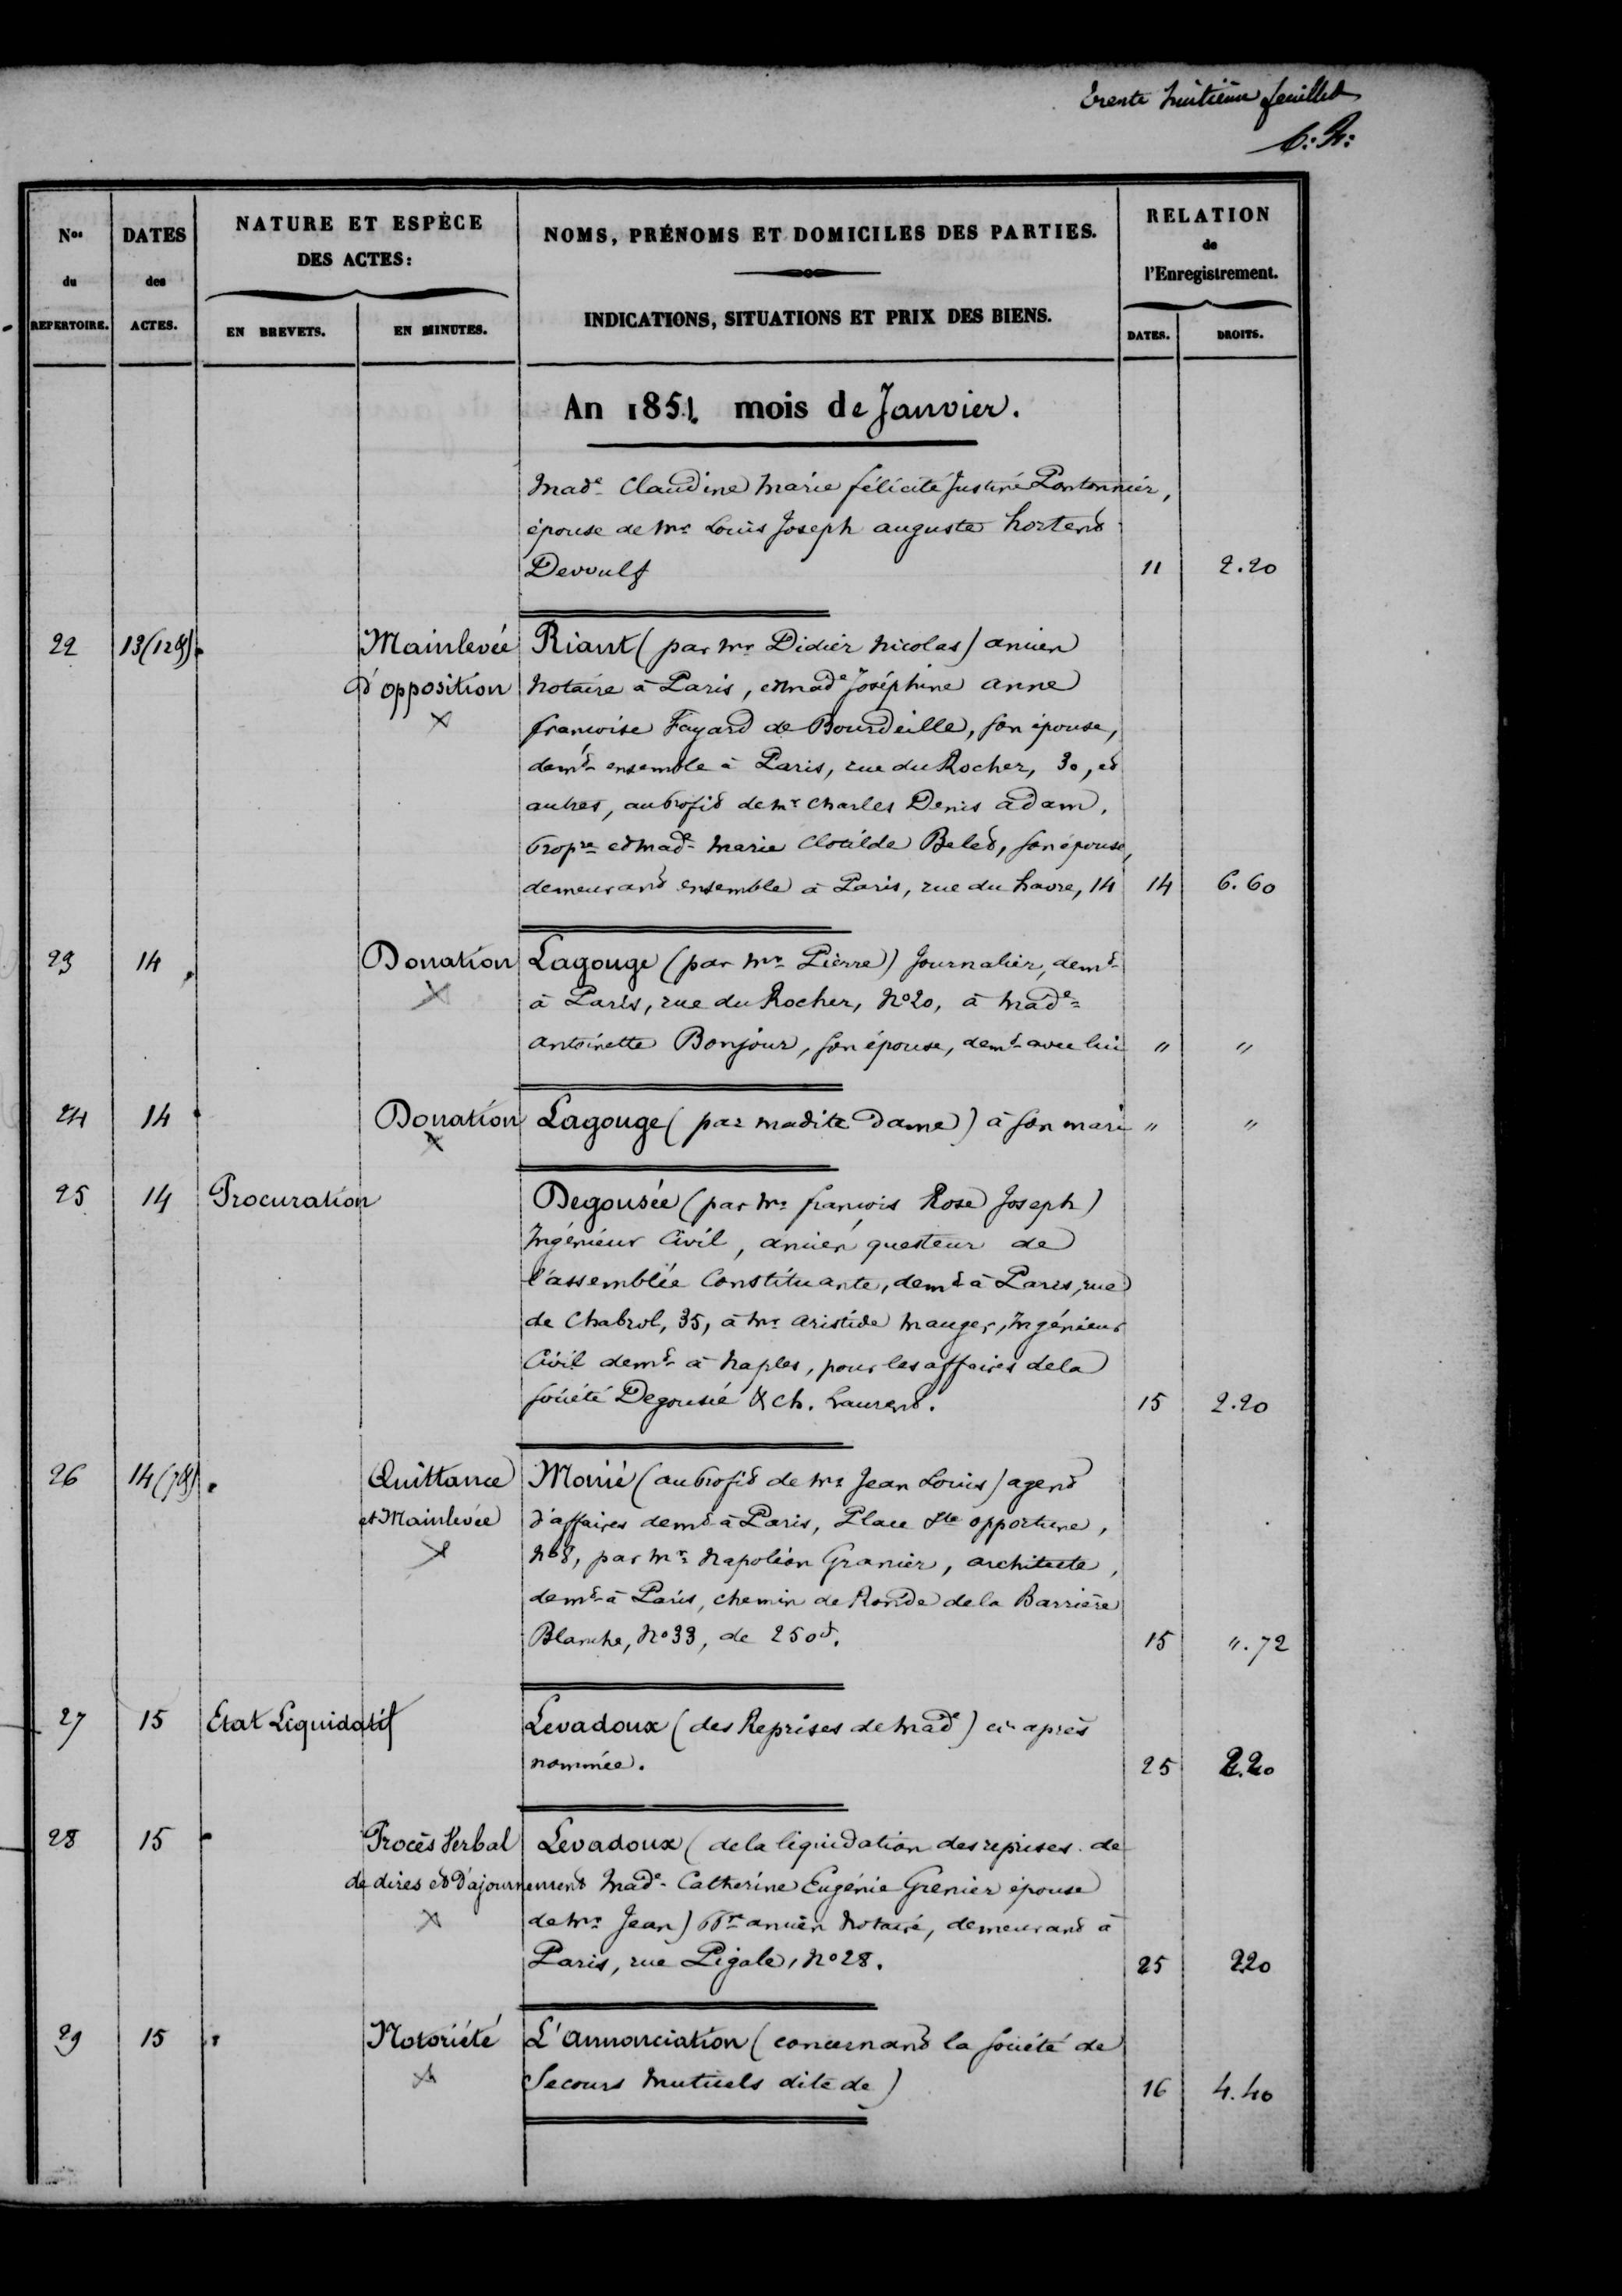 Trente huitième feuillet
Nos du REPERTOIRE.
DATES des ACTES.
NATURE ET ESPÈCE DES ACTES:
EN BREVETS.
EN MINUTES.
NOMS, PRÉNOMS ET DOMICILES DES PARTIES.
INDICATIONS, SITUATIONS ET PRIX DES BIENS.
RELATION de l'Enregistrement.
DATES.
DROITS.
An 1851. mois de Janvier.
Made Claudine Marie félicité Justine Pontonnier,
épouse de Mr Louis Joseph auguste hortend
Devoulf 11 2.20
22 13 (12 Mainlevée Riant (par Mr Didier Nicolas) ancien
d'opposition Notaire à Paris, et Made Joséphine anne
françoise Fayard de Bourdeille, son épouse,
demt ensemble à Paris, rue du Rocher, 30, et
autres, au profit de Mr Charles Denis adam,
propre et Made Marie Clotilde Belet, son épouse,
demeurant ensemble à Paris, rue du havre, 14 14 6.60
23 14 Donation Lagouge (par Mr Pierre) Journalier, demt
à Paris, rue du Rocher, No 20, à Made
antoinette Bonjour, son épouse, demt avec lui " "
24 14 Donation Lagouge (par madite Dame) à son mari " "
25 14 Procuration Degousée (par Mr françois Rose Joseph)
Ingénieur Civil, ancien questeur de
l'assemblée Constituante, demt à Paris, rue
de Chabrol, 35, à Mr aristide Mauger, Ingénieur
Civil demt à Naples, pour les affaires de la
société Degousée & Ch. Laurent. 15 2.20
26 14 (7 Quittance Morié (au profit de Mr Jean Louis) agent
et Mainlevée d'affaires demt à Paris, Place Ste opportune,
No 8, par Mr Napoléon Granier, architecte,
demt à Paris, chemin de Ronde de la Barrière
Blanche, No 33, de 250f. 15 ".72
27 15 Etat Liquidatif Levadoux (des Reprises de Made) ci-après
nommée. 25 2.20
28 15 Procès Verbal Levadoux (de la liquidation des reprises de
de dires et d'ajournement Made Catherine Eugénie Grenier épouse
de Mr Jean) ppre ancien Notaire, demeurant à
Paris, rue Pigale, No 28. 25 220
29 15 Notoriété L'annonciation (concernant la société de
Secours Mutuels dite de) 16 4.40